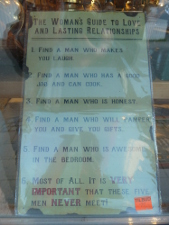 The Woman's Guide to Love
and Lasting Relationships
1. Find a man who makes
you laugh.
2. Find a man who has a good
job and can cook.
3. Find a man who is honest.
4. Find a man who will pamper
you and give you gifts.
5. Find a man who is awesome
in the bedroom.
6. Most of all, it is VERY
IMPORTANT that these five
men NEVER meet!